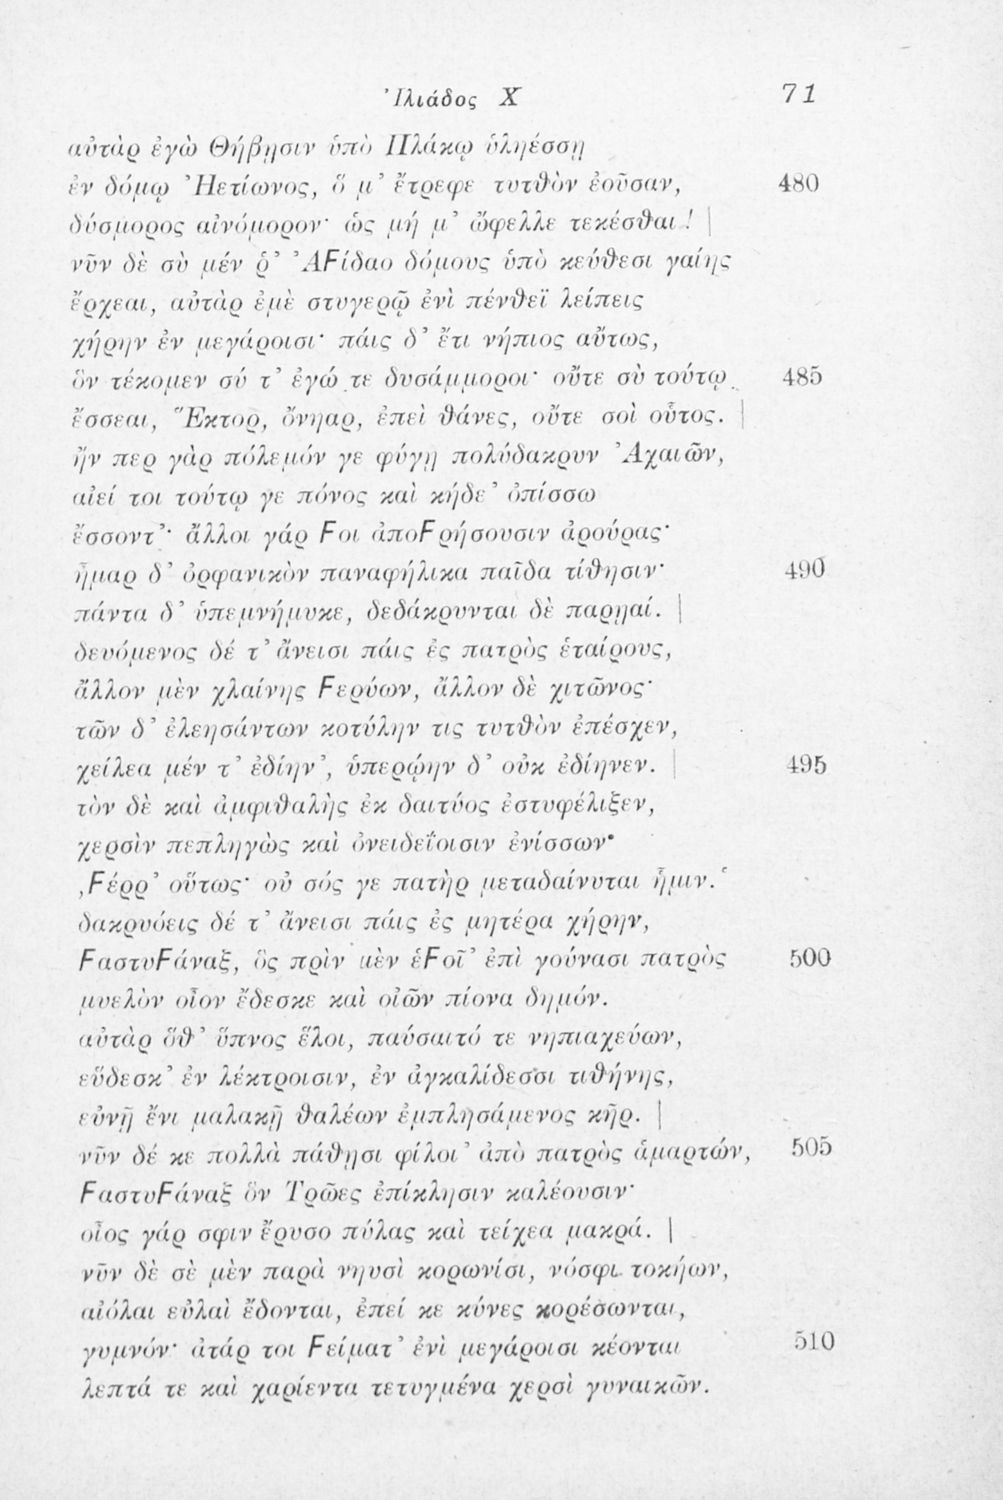 Ἰλιάδος Χ 71
αὐτὰρ ἐγὼ Θήβησιν ὑπὸ Πλάκῳ ὑληέσσῃ
ἐν δόμῳ Ἠετίωνος, ὅ μ’ ἔτρεφε τυτθὸν ἐοῦσαν, 480
δύσμορος αἰνόμορον· ὡς μή μ’ ὤφελλε τεκέσθαι! |
νῦν δὲ σὺ μέν ῥ’ Ἀϝίδαο δόμους ὑπὸ κεύθεσι γαίης
ἔρχεαι, αὐτὰρ ἐμὲ στυγερῷ ἐνὶ πένθεϊ λείπεις
χήρην ἐν μεγάροισι· πάις δ’ ἔτι νήπιος αὔτως,
ὃν τέκομεν σύ τ’ ἐγώ τε δυσάμμοροι· οὔτε σὺ τούτῳ 485
ἔσσεαι, Ἕκτορ, ὄνηαρ, ἐπεὶ θάνες, οὔτε σοὶ οὗτος. |
ἤν περ γὰρ πόλεμόν γε φύγῃ πολύδακρυν Ἀχαιῶν,
αἰεί τοι τούτῳ γε πόνος καὶ κήδε’ ὀπίσσω
ἔσσοντ’· ἄλλοι γάρ ϝοι ἀποϝρήσουσιν ἀρούρας·
ἦμαρ δ’ ὀρφανικὸν παναφήλικα παῖδα τίθησιν· 490
πάντα δ’ ὑπεμνήμυκε, δεδάκρυνται δὲ παρηαί. |
δευόμενος δέ τ’ ἄνεισι πάις ἐς πατρὸς ἑταίρους,
ἄλλον μὲν χλαίνης ϝερύων, ἄλλον δὲ χιτῶνος·
τῶν δ’ ἐλεησάντων κοτύλην τις τυτθὸν ἐπέσχεν,
χείλεα μέν τ’ ἐδίην’, ὑπερῴην δ’ οὐκ ἐδίηνεν. | 495
τὸν δὲ καὶ ἀμφιθαλὴς ἐκ δαιτύος ἐστυφέλιξεν,
χερσὶν πεπληγὼς καὶ ὀνειδεΐοισιν ἐνίσσων·
‚ϝέρρ’ οὕτως· οὐ σός γε πατὴρ μεταδαίνυται ἧμιν.‘
δακρυόεις δέ τ’ ἄνεισι πάις ἐς μητέρα χήρην,
ϝαστυϝάναξ, ὃς πρὶν μὲν ἑϝοῖ’ ἐπὶ γούνασι πατρὸς 500
μυελὸν οἶον ἔδεσκε καὶ οἰῶν πίονα δημόν.
αὐτὰρ ὅθ’ ὕπνος ἕλοι, παύσαιτό τε νηπιαχεύων,
εὕδεσκ’ ἐν λέκτροισιν, ἐν ἀγκαλίδεσσι τιθήνης,
εὐνῇ ἔνι μαλακῇ θαλέων ἐμπλησάμενος κῆρ. |
νῦν δέ κε πολλὰ πάθησι φίλοι’ ἀπὸ πατρὸς ἁμαρτών, 505
ϝαστυϝάναξ ὃν Τρῶες ἐπίκλησιν καλέουσιν·
οἶος γάρ σφιν ἔρυσο πύλας καὶ τείχεα μακρά. |
νῦν δὲ σὲ μὲν παρὰ νηυσὶ κορωνίσι, νόσφι τοκήων,
αἰόλαι εὐλαὶ ἔδονται, ἐπεί κε κύνες κορέσωνται,
γυμνόν· ἀτάρ τοι ϝείματ’ ἐνὶ μεγάροισι κέονται 510
λεπτά τε καὶ χαρίεντα τετυγμένα χερσὶ γυναικῶν.